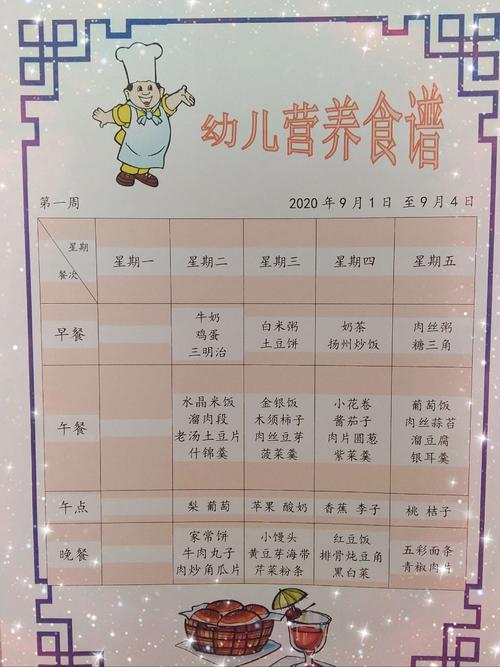 幼儿营养食谱
第一周 2020年9月1日 至9月4日
星期
餐次
星期一 星期二 星期三 星期四 星期五
早餐
牛奶
鸡蛋
三明治
白米粥
土豆饼
奶茶
扬州炒饭
肉丝粥
糖三角
午餐
水晶米饭
溜肉段
老汤土豆片
什锦羹
金银饭
木须柿子
肉丝豆芽
菠菜羹
小花卷
酱茄子
肉片圆葱
紫菜羹
葡萄饭
肉丝蒜苔
溜豆腐
银耳羹
午点
梨 葡萄
苹果 酸奶
香蕉 李子
桃 桔子
晚餐
家常饼
牛肉丸子
肉炒角瓜片
小馒头
黄豆芽海带
芹菜粉条
红豆饭
排骨炖豆角
黑白菜
五彩面条
青椒肉片